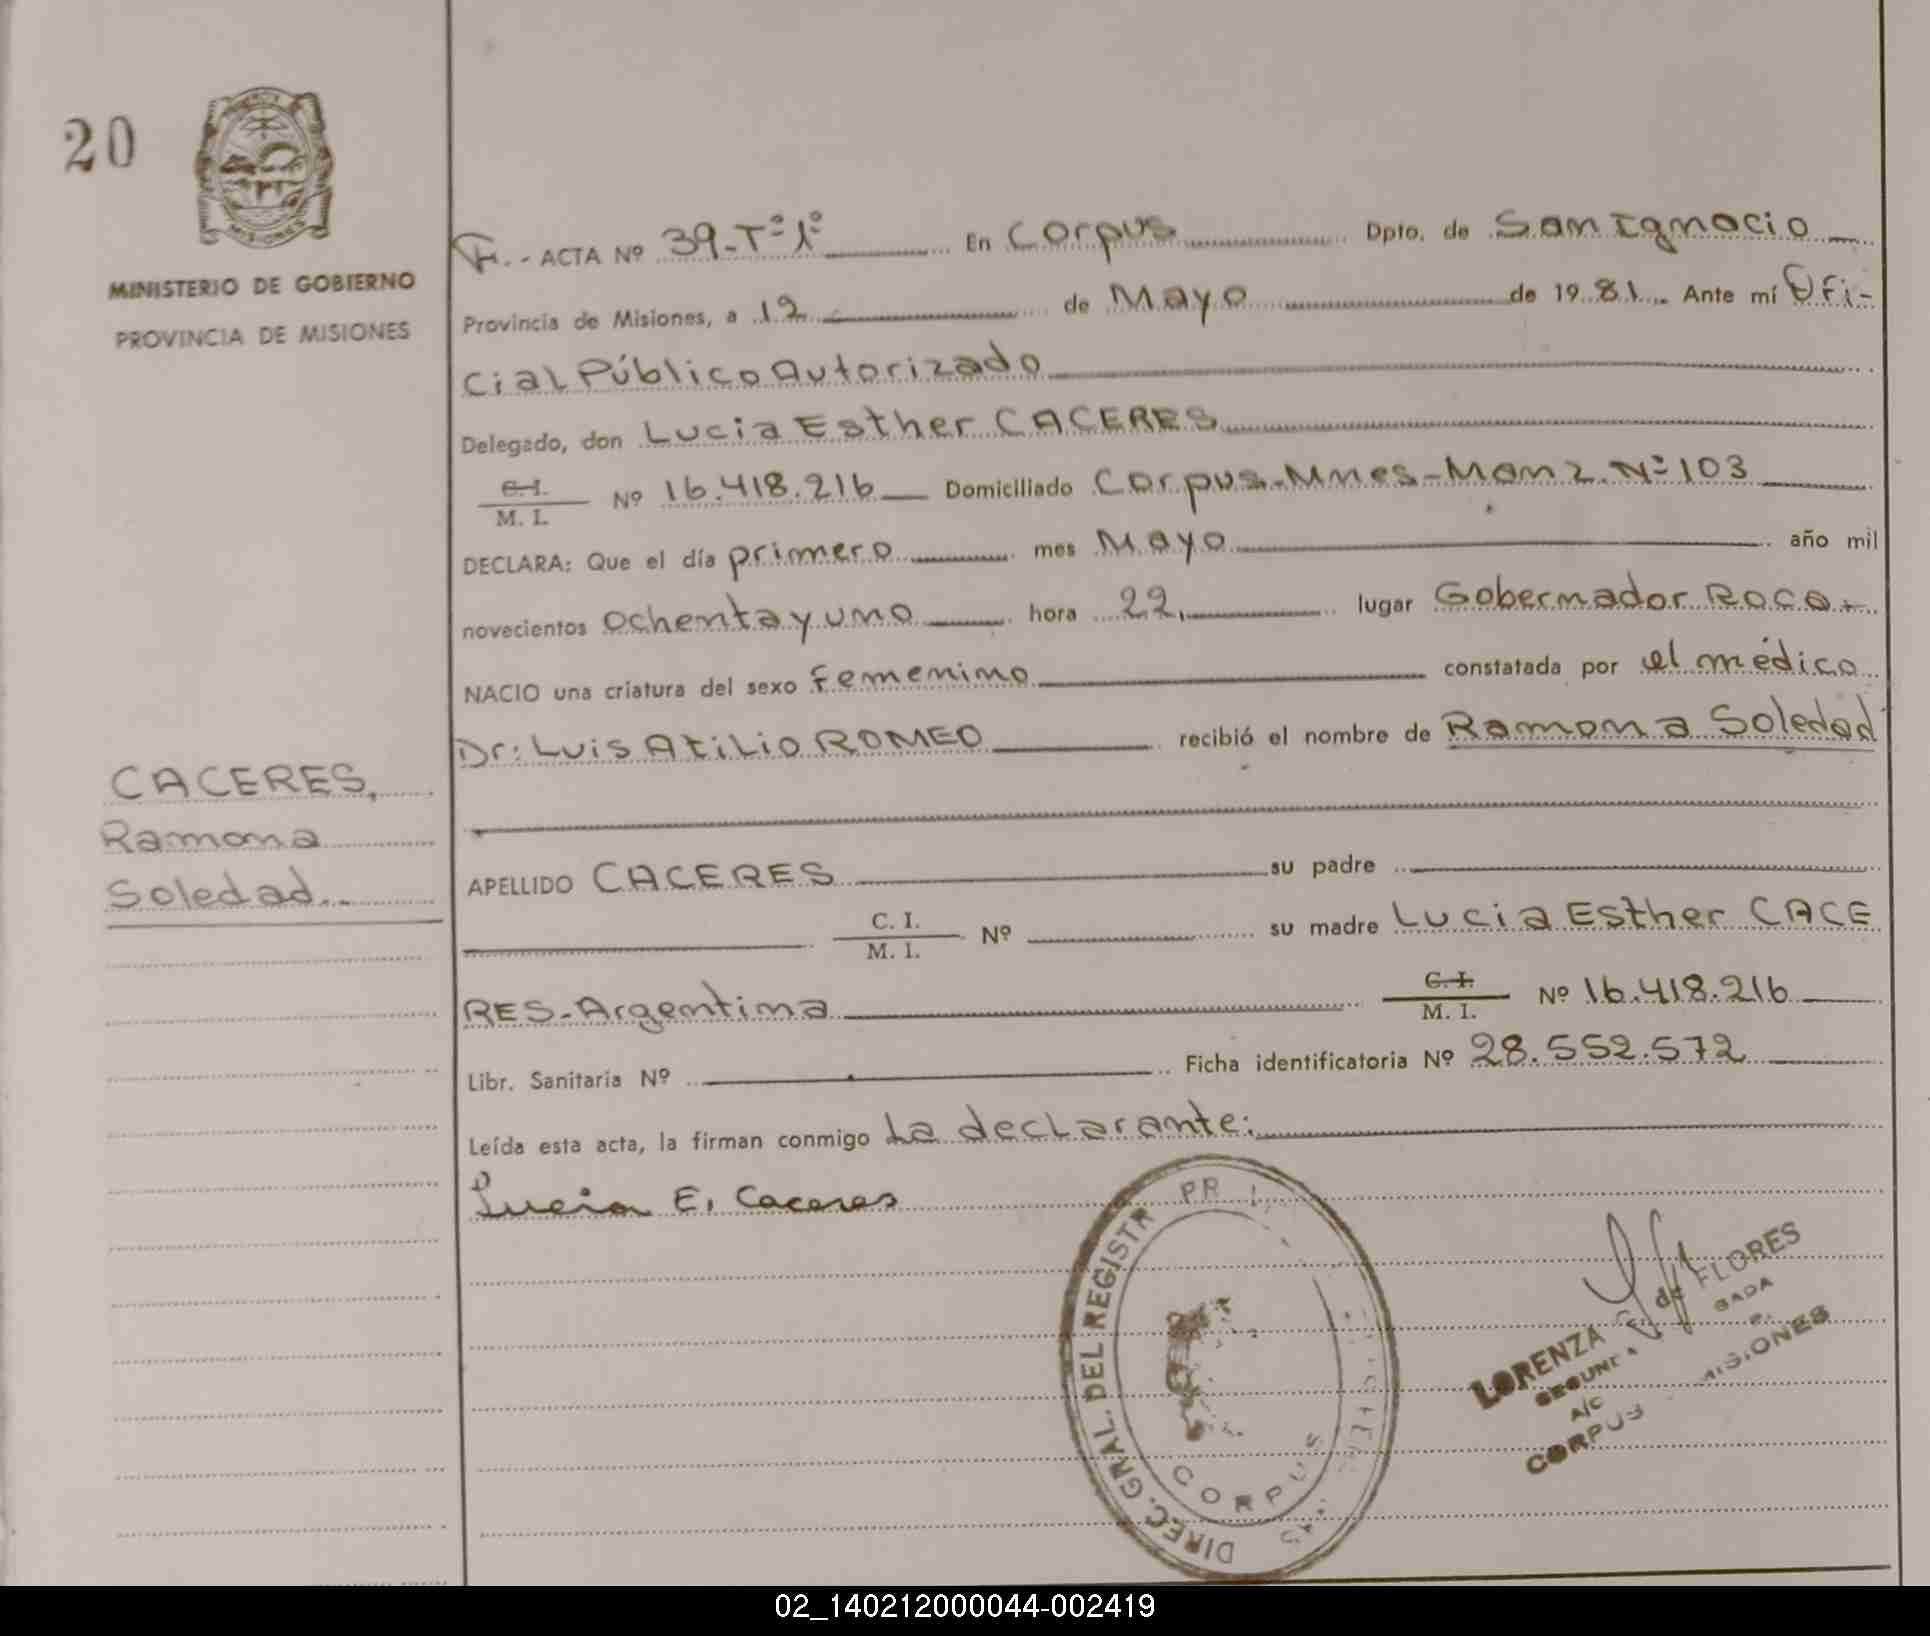 20
MINISTERIO DE GOBIERNO
PROVINCIA DE MISIONES
F.- ACTA Nº 39-Tº1º En Corpus Dpto. de San Ignacio
Provincia de Misiones, a 12 de Mayo de 1981. Ante mí Ofi-
cial Público Autorizado
Delegado, don Lucia Esther CACERES
C. I.
M. I. Nº 16.418.216 Domiciliado Corpus-Mnes-Manz.Nº103
DECLARA: Que el día primero mes Mayo año mil
novecientos ochenta y uno hora 22. lugar Gobernador Roca.
NACIO una criatura del sexo femenino constatada por el médico
Dr: Luis Atilio ROMEO recibió el nombre de Ramona Soledad
CACERES,
Ramona
Soledad.-
APELLIDO CACERES su padre
C. I.
M. I. Nº su madre Lucia Esther CACE
RES-Argentina C. I.
M. I. Nº 16.418.216
Libr. Sanitaria Nº Ficha identificatoria Nº 28.552.572
Leída esta acta, la firman conmigo la declarante:
Lucia E. Caceres
DIREC. GRAL. DEL REGISTR PR
CORPUS
LORENZA de FLORES
A/C
CORPUS MISIONES
02_140212000044-002419